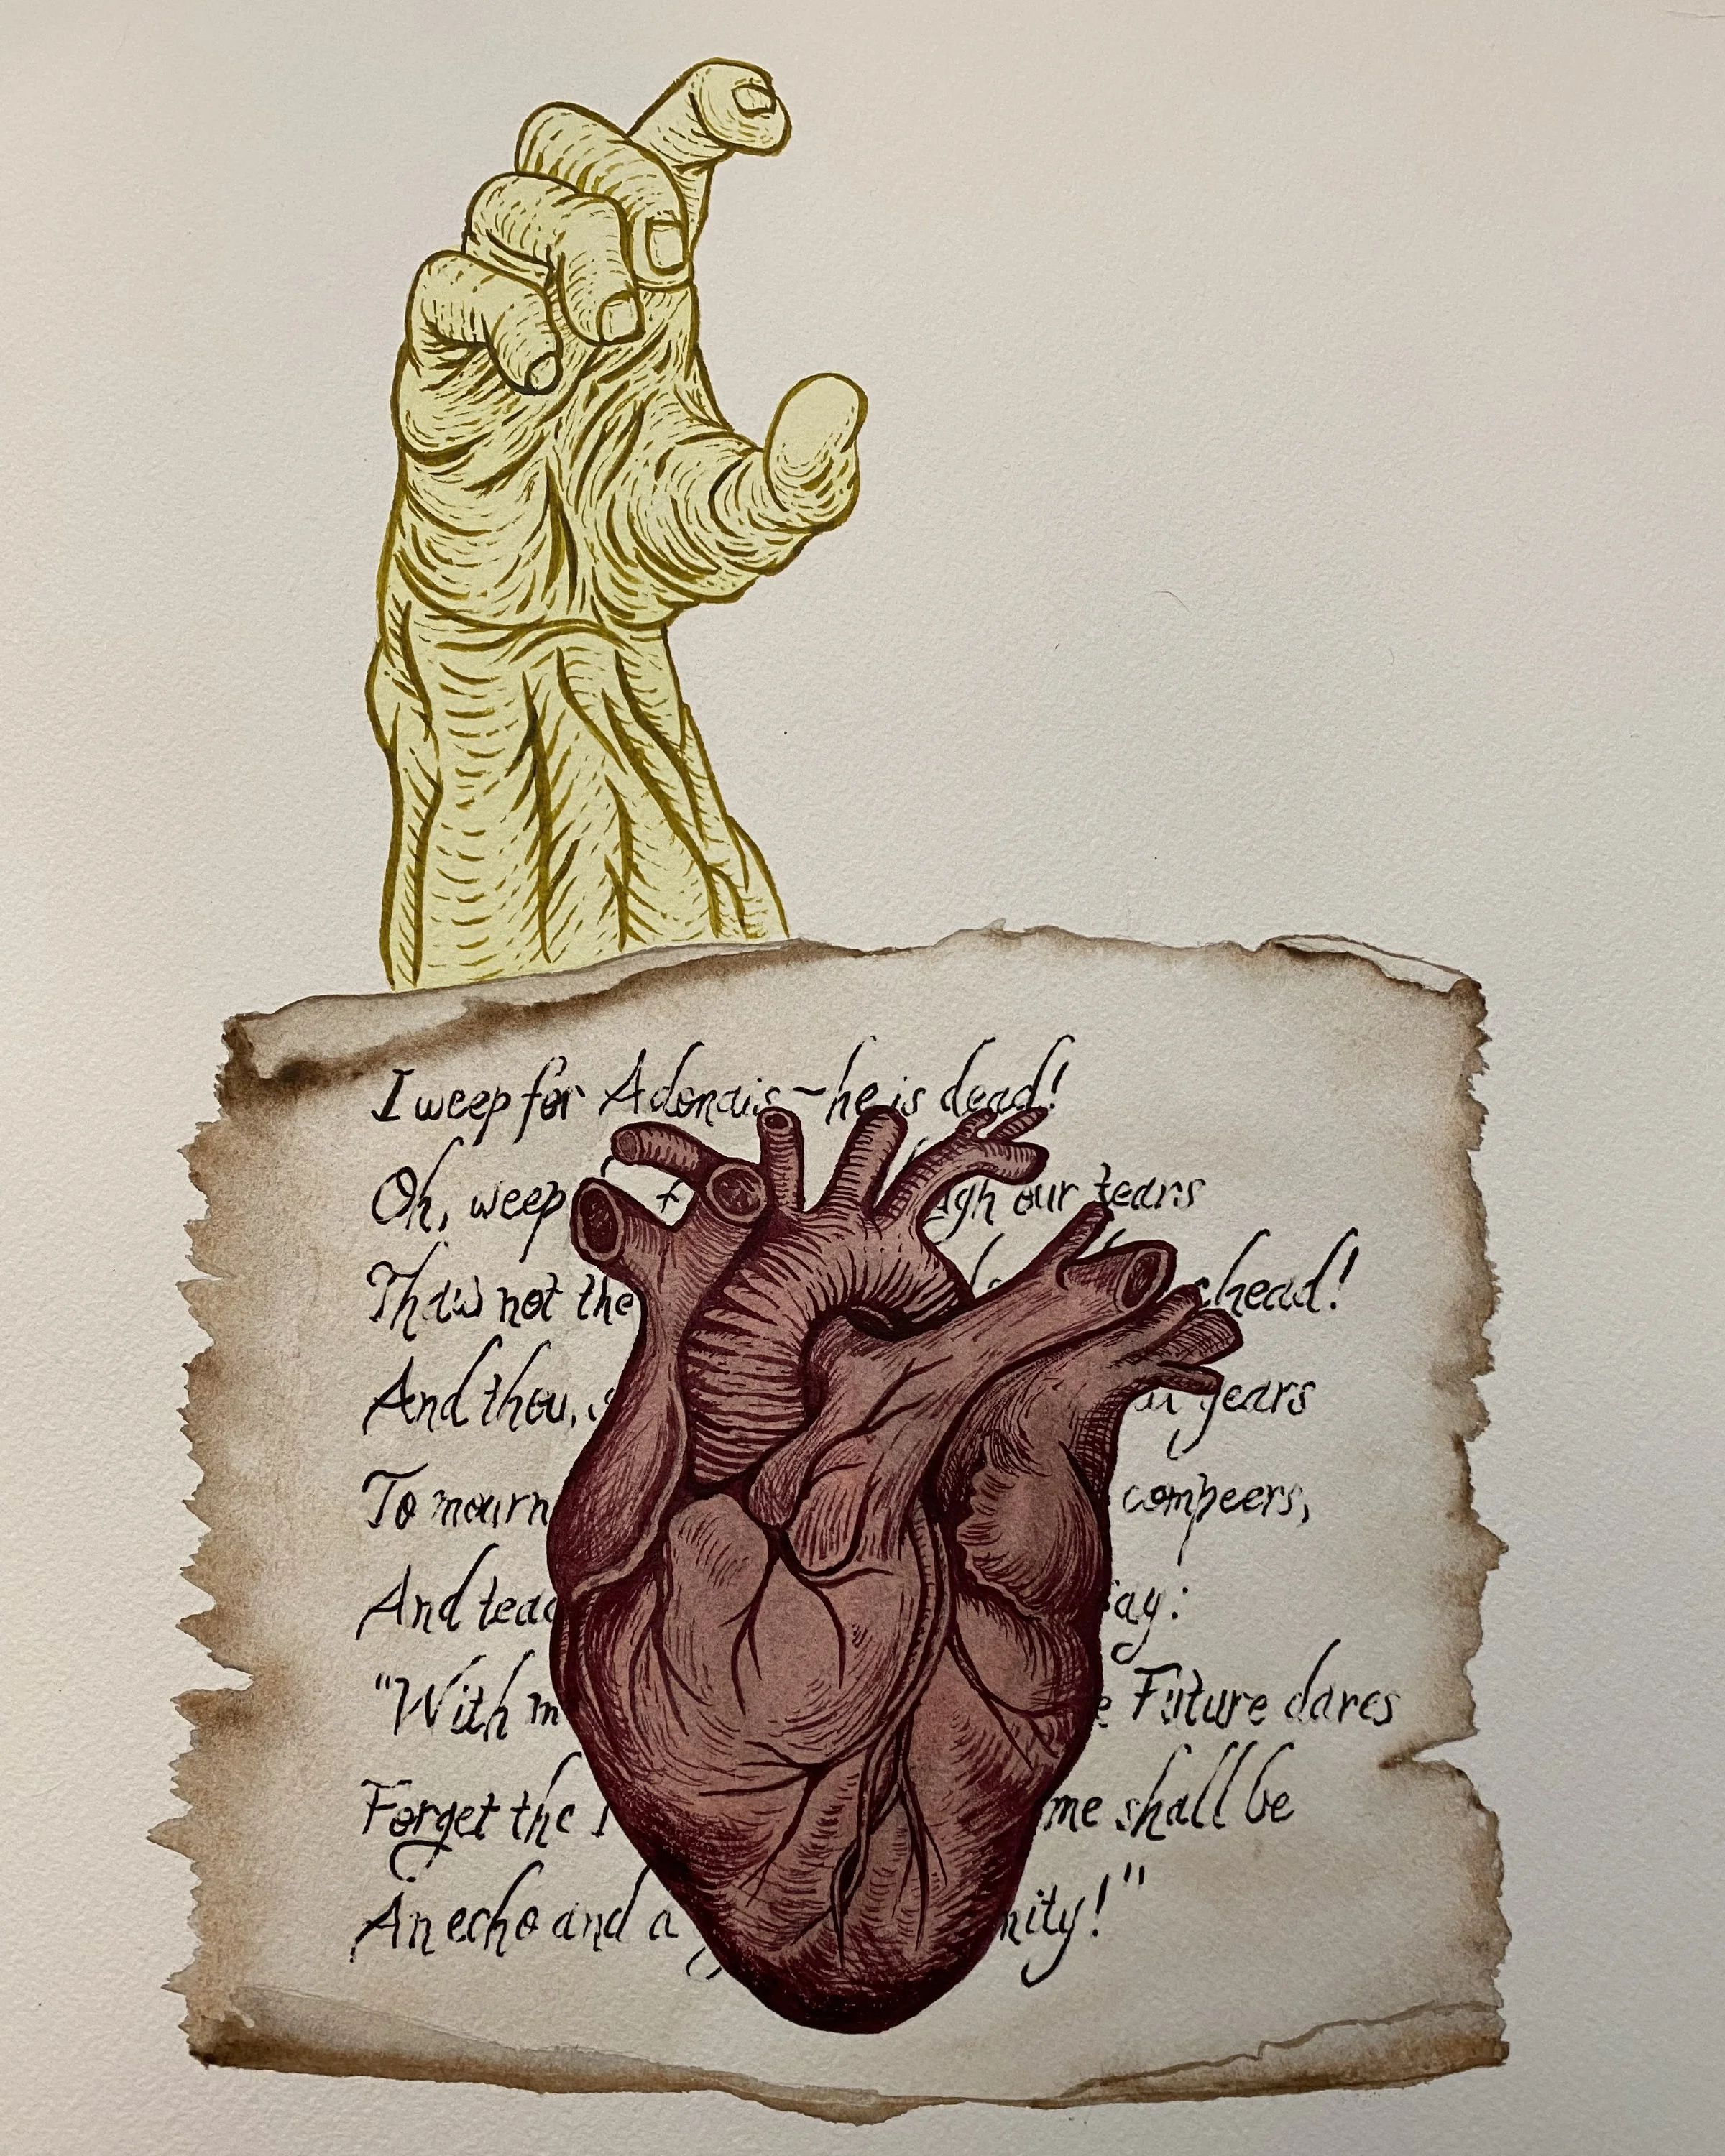 I weep for Adonais—he is dead!
Oh, weep our tears
Thaw not the head!
And thou, years
To mourn compeers,
And
"With Future dares
Forget the me shall be
An echo and a